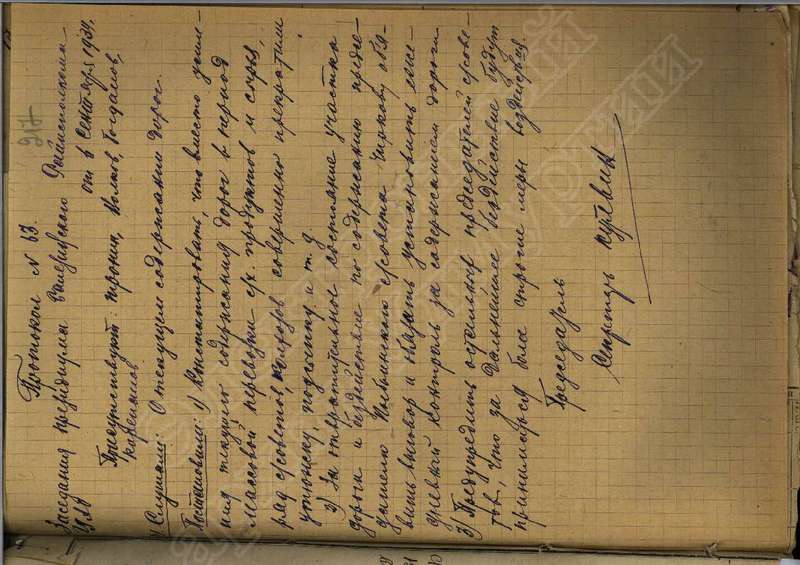 217
Протокол N 63.
Заседания президиума Райисполкома
от 8 сентября 1934.
Присутствуют: Тронин, Волков, Богданов,
Корепанов
1/ Слушали: О текущем содержании дорог.
Постановили: 1) Констатировать, что вместо усиле-
ния текущего содержания дорог в период
массовой перевозки с/х. продуктов и сырья,
ряд с/советов, колхозов совершенно прекратили
утюжку, подсыпку и т.д
2) За отвратительное состояние участка
дороги и бездействие по содержанию предсе-
дателю с/совета Чиркову объя-
вить выговор и обязать установить ежед-
дневный контроль за содержанием дороги.
3) Предупредить отдельных председателей с/сове-
тов, что за дальнейшее бездействие будут
приниматься более строгие меры воздействия
Председатель
Секретарь